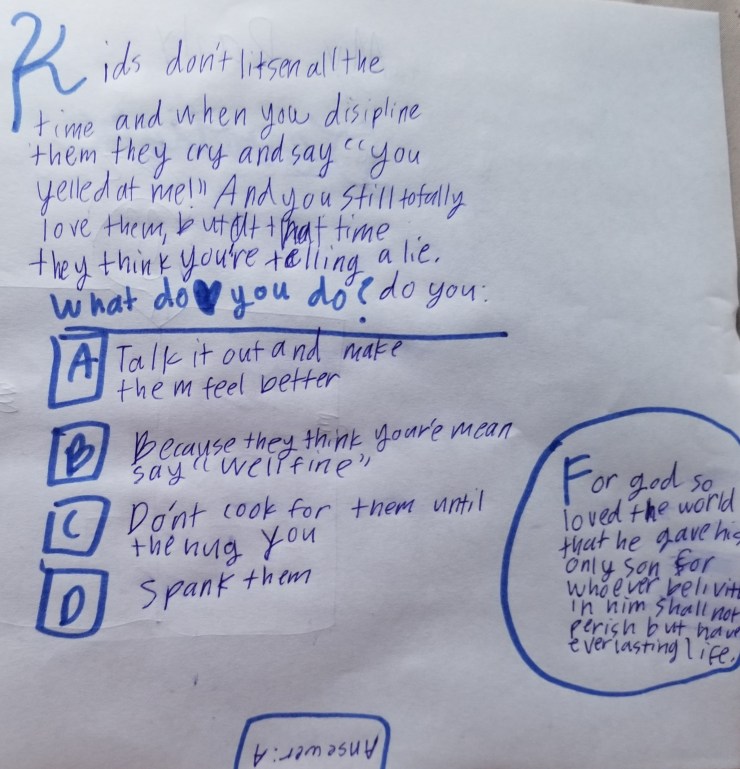 Kids don't litsen all the
time and when you disipline
them they cry and say "you
yelled at me!" And you still totally
love them, but at that time
they think you're telling a lie.
What do you do? do you:
A Talk it out and make
them feel better
B Because they think your'e mean
say "well fine"
C Do'nt cook for them until
the hug you
D Spank them
For god so
loved the world
that he gave his
only son for
whoever belivith
in him shall not
perish but have
everlasting life.
Ansewer: A